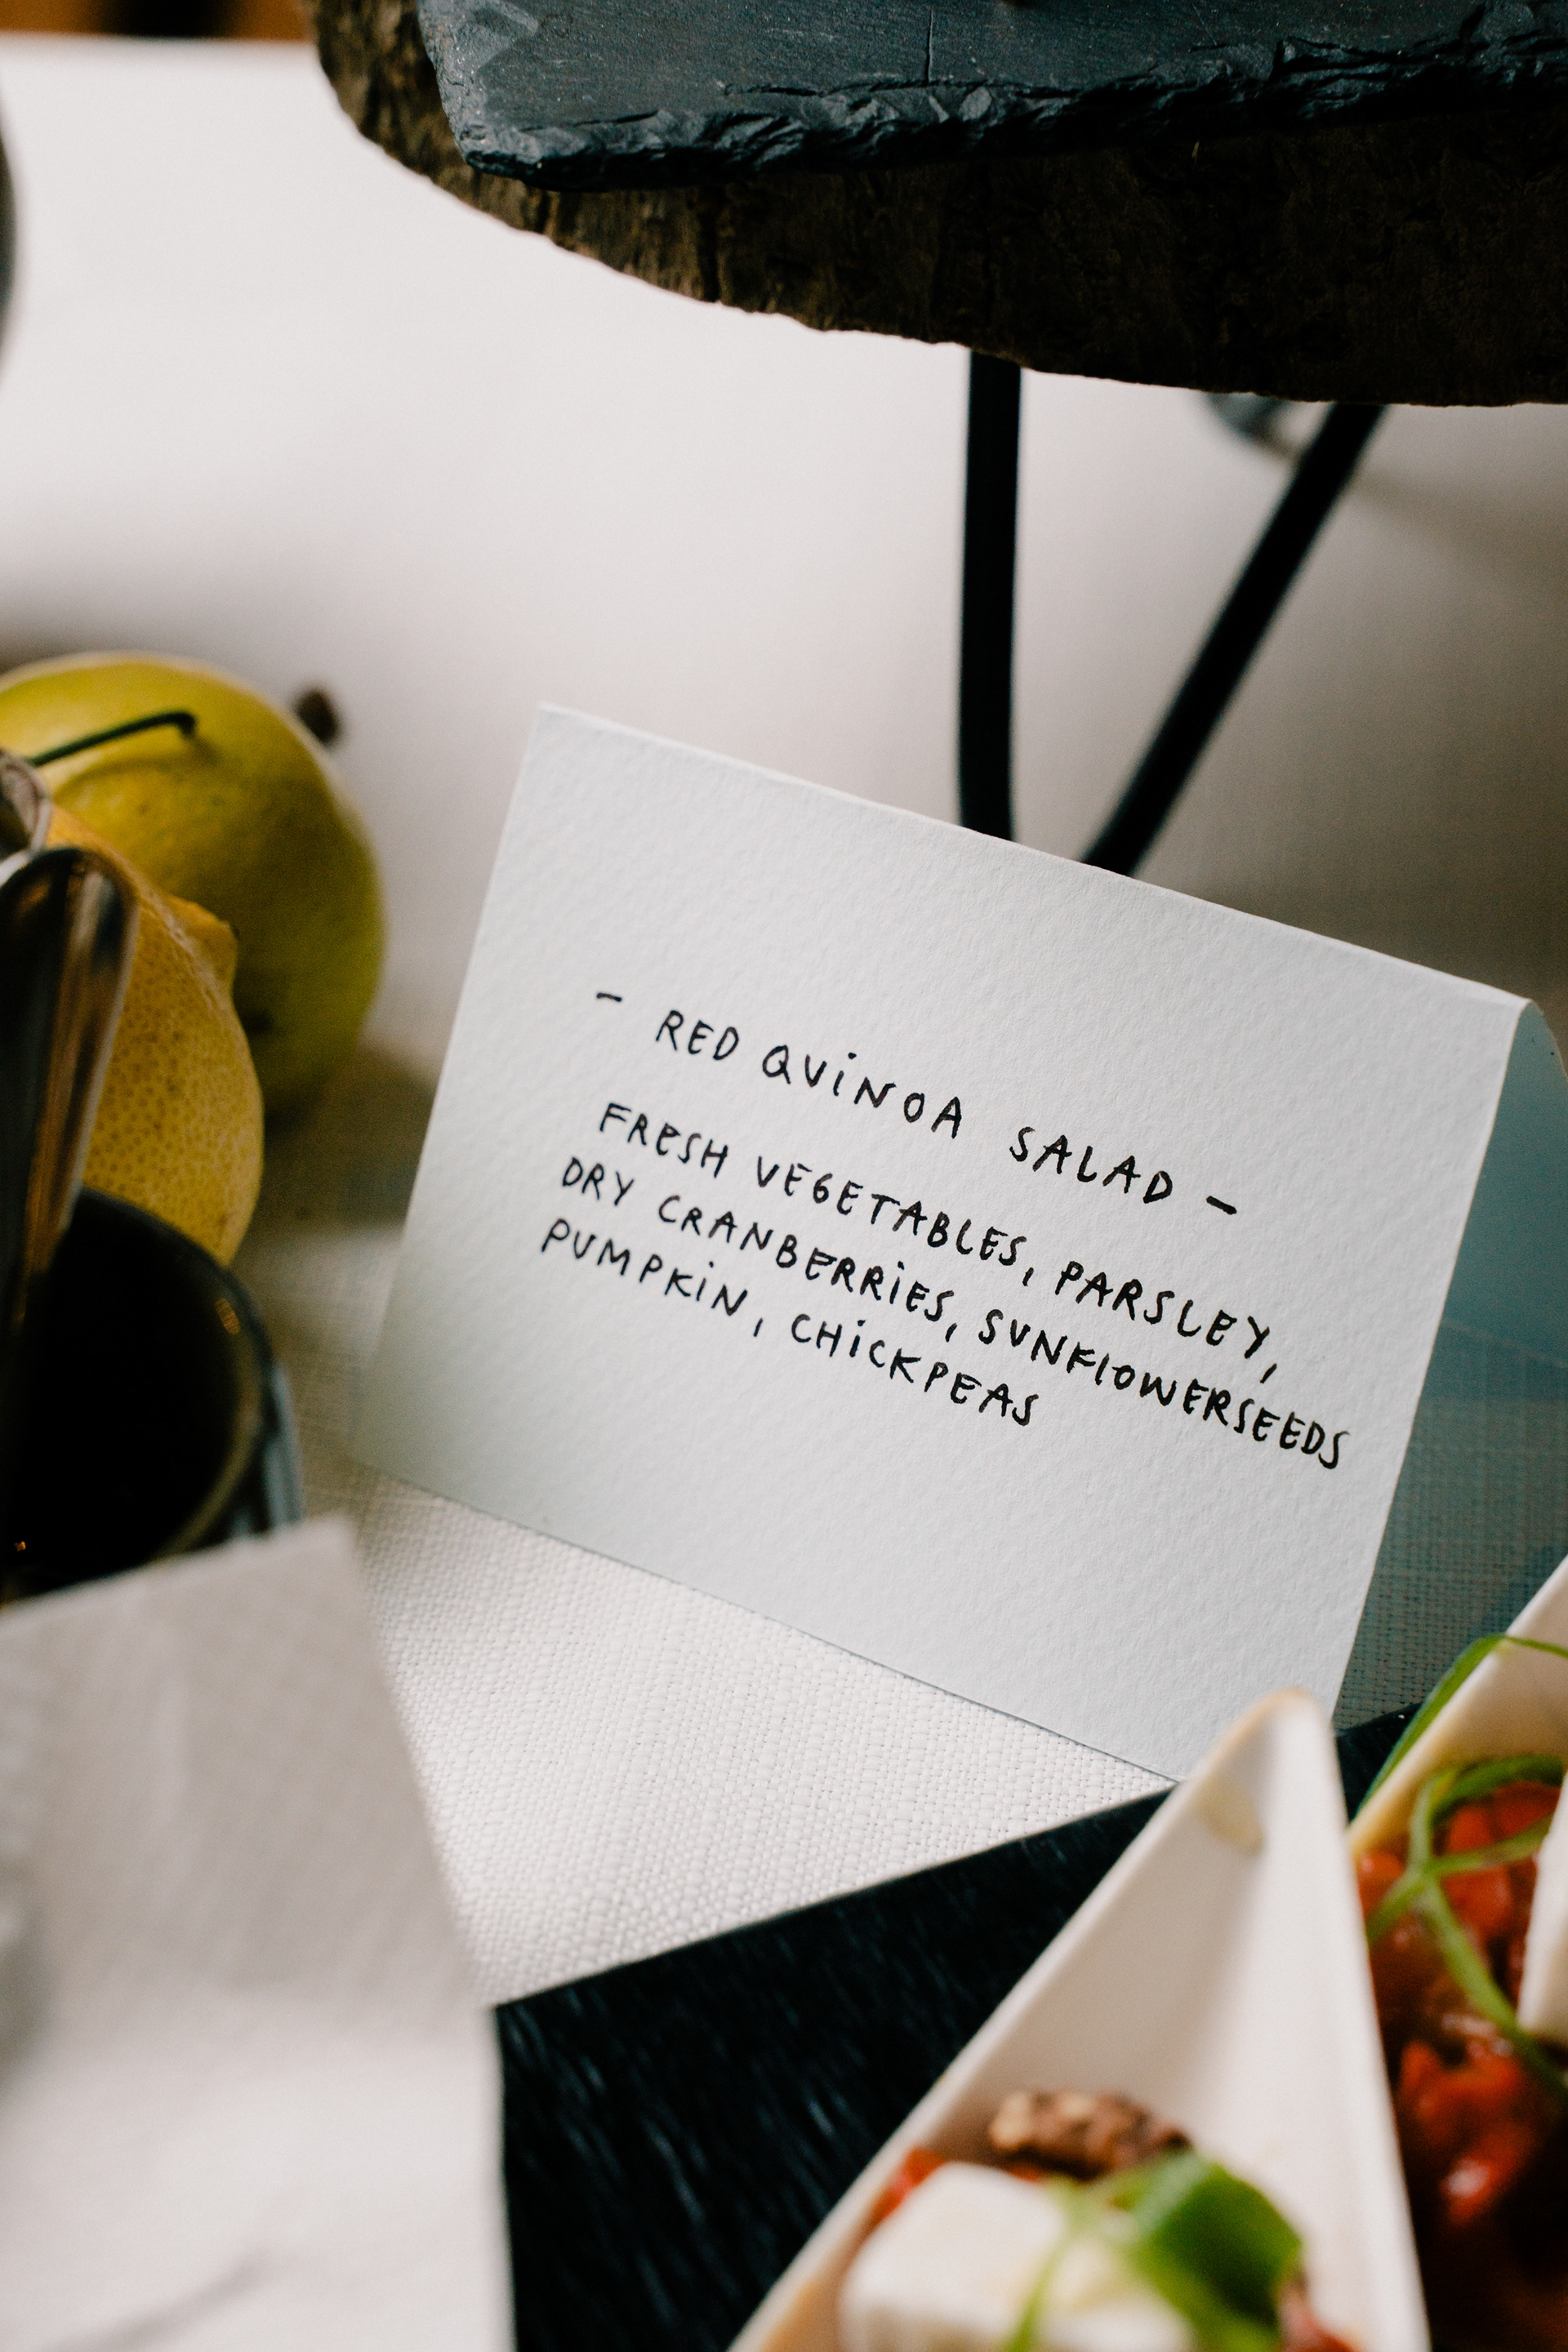 - RED QUiNOA SALAD -
FRESH VEGETABLES, PARSLEY,
DRY CRANBERRiES, SUNFlOWERSEEDS
PUMPKiN, CHiCKPEAS